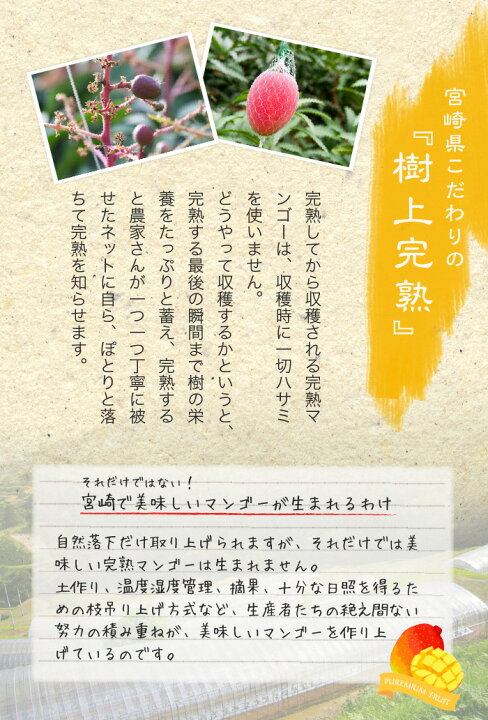 宮崎県こだわりの
『樹上完熟』
完熟してから収穫される完熟マ
ンゴーは、収穫時に一切ハサミ
を使いません。
どうやって収穫するかというと、
完熟する最後の瞬間まで樹の栄
養をたっぷりと蓄え、完熟する
と農家さんが一つ一つ丁寧に被
せたネットに自ら、ぽとりと落
ちて完熟を知らせます。
それだけではない!
宮崎で美味しいマンゴーが生まれるわけ
自然落下だけ取り上げられますが、それだけでは美
味しい完熟マンゴーは生まれません。
土作り、温度湿度管理、摘果、十分な日照を得るた
めの枝吊り上げ方式など、生産者たちの絶え間ない
努力の積み重ねが、美味しいマンゴーを作り上
げているのです。
PUREMIUM FRUIT